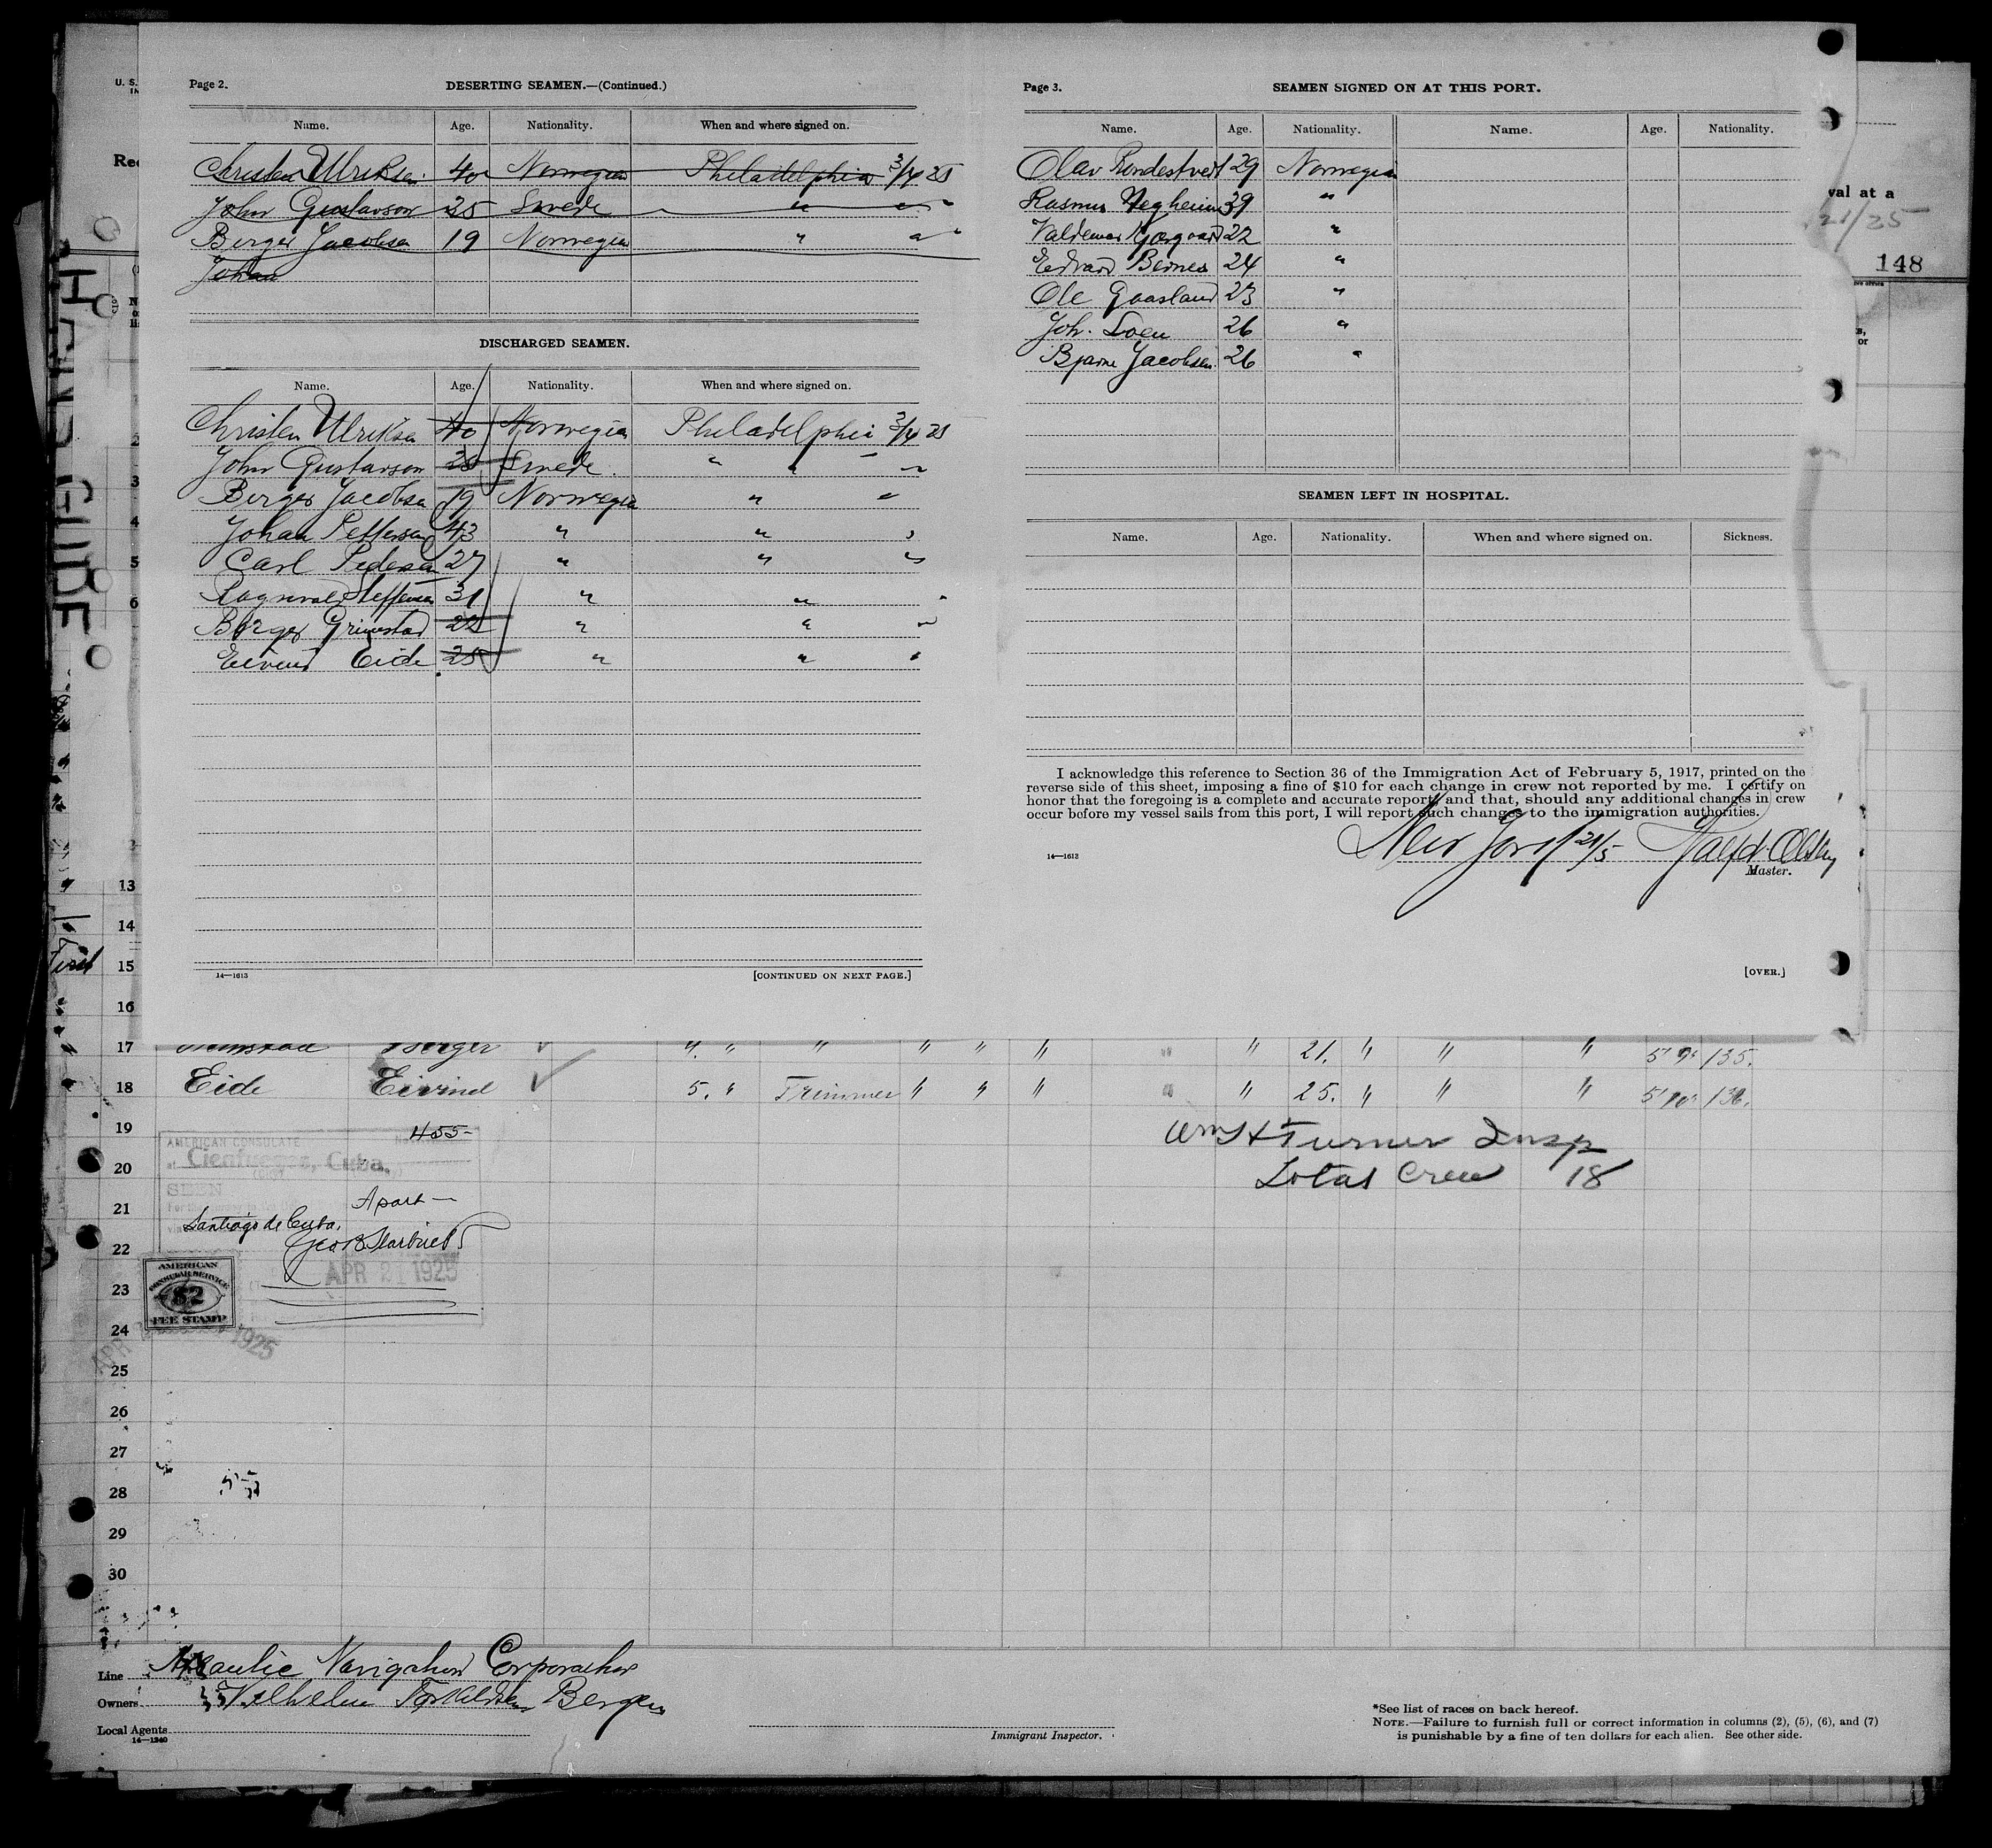 Page 2.
DESERTING SEAMEN.—(Continued.)
Name. Age. Nationality. When and where signed on.
Christen Ulriksen 40 Norwegian Philadelphia 3/4 25
John Gustavson 25 Swede " "
Berger Jacobsen 19 Norwegian " " "
Johan
DISCHARGED SEAMEN.
Name. Age. Nationality. When and where signed on.
Christen Ulriksen 40 Norwegian Philadelphia 3/4 25
John Gustavson 25 Swede. " " " "
Berger Jacobsen 19 Norwegian " "
Johan Pettersen 43 " " "
Carl Pedersen 27 " " "
Ragnvald Steffensen 31 " " "
Berger Grimstad 22 " " "
Eivind Eide 25 " " "
14—1613
[CONTINUED ON NEXT PAGE.]
Page 3.
SEAMEN SIGNED ON AT THIS PORT.
Name. Age. Nationality. Name. Age. Nationality.
Olav 29 Norwegian
Rasmus 39 "
Valdemar 22 "
Edvard Bernes 24 "
Ole Gaasland 23 "
Joh. Loen 26 "
Bjarne Jacobsen. 26 "
SEAMEN LEFT IN HOSPITAL.
Name. Age. Nationality. When and where signed on. Sickness.
I acknowledge this reference to Section 36 of the Immigration Act of February 5, 1917, printed on the
reverse side of this sheet, imposing a fine of $10 for each change in crew not reported by me. I certify on
honor that the foregoing is a complete and accurate report, and that, should any additional changes in crew
occur before my vessel sails from this port, I will report such changes to the immigration authorities.
New York 21/5
14—1613
Master.
[OVER.]
U. S.
IN
Rec
val at a
21/25
148
13
14
15
16
17 Grimstad Berger ✓ 4. " " " " " " " 21. " " " 5' 9" 135.
18 Eide Eivind ✓ 5. " Trimmer " " " " " 25. " " " 5' 10" 136.
19
20
21
22
23
24
25
26
27
28
29
30
Wm H Turner Insp
Total Crew 18
AMERICAN CONSULATE
455-
at Cienfuegos, Cuba.
SEEN
Santiago de Cuba.
APR 21 1925
AMERICAN
CONSULAR SERVICE
$2
FEE STAMP
APR 1925
Line Navigation Corporation
Owners Wilhelm Torkildsen Bergen
Local Agents
14—1240
Immigrant Inspector.
*See list of races on back hereof.
NOTE.—Failure to furnish full or correct information in columns (2), (5), (6), and (7)
is punishable by a fine of ten dollars for each alien. See other side.